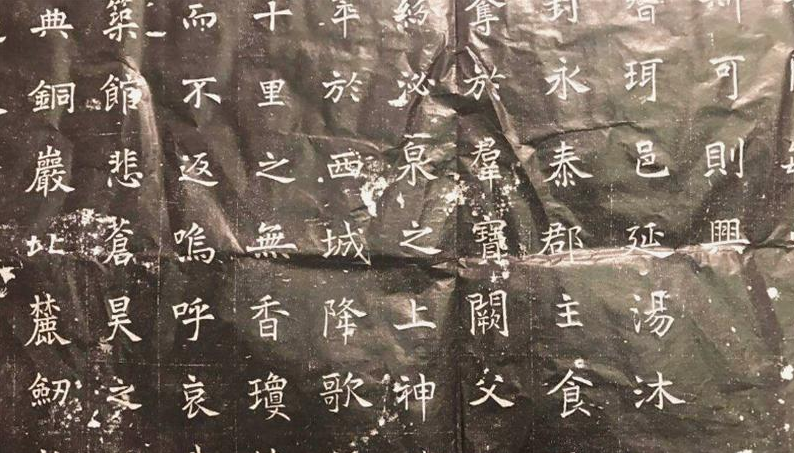 可則興
珥邑延湯沐
封永泰郡主食
奪於羣寶闕父
泌泉之上神
於西城降歌
十里之無香瓊
而不返嗚呼哀
築館悲蒼昊之
典銅巖北麓